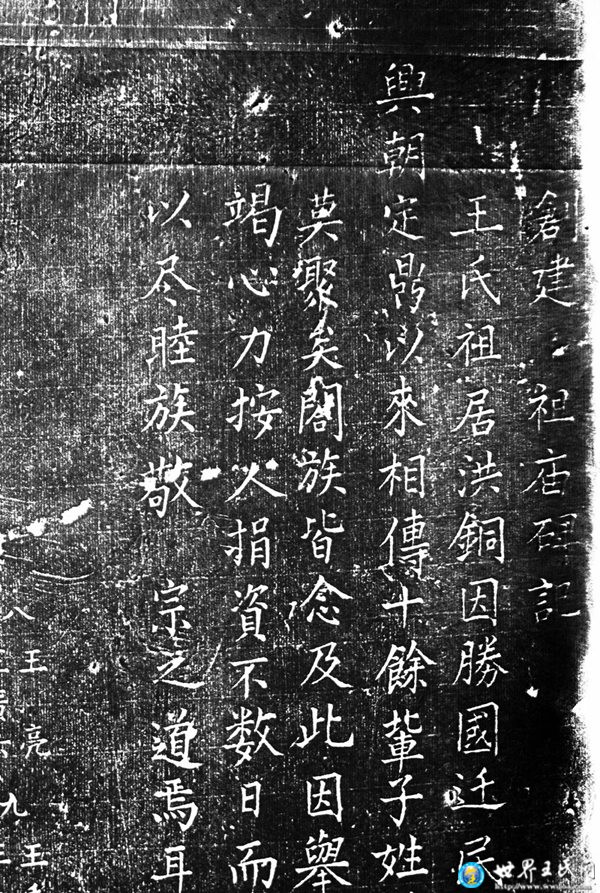 創建祖庙碑記
王氏祖居洪銅因勝國迁民
興朝定鼎以來相傳十餘軰子姓
莫聚矣閤族皆念及此因舉
竭心力按人捐資不数日而
以尽睦族敬 宗之道焉耳
八王亮
九王
世界王氏网